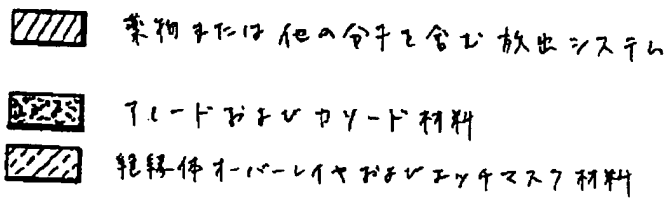 薬物または他の分子を含む放出システム
アノードおよびカソード材料
絶縁体オーバーレイヤおよびエッチマスク材料